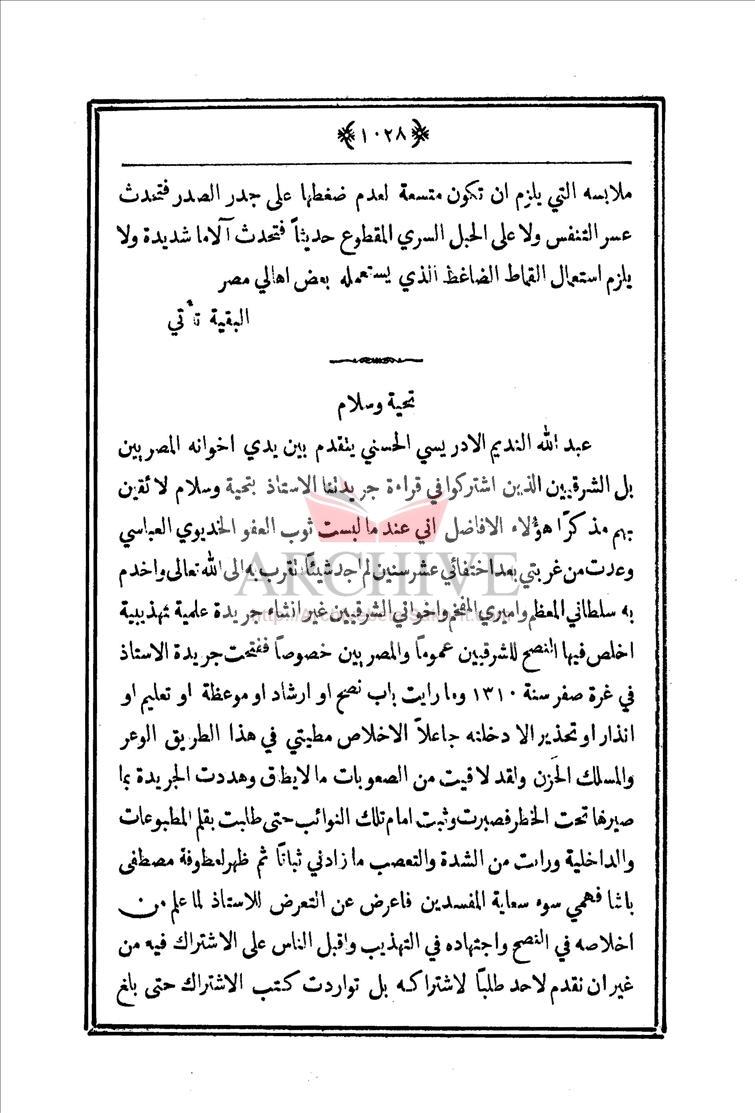 ١٠٢٨
ملابسه التي يلزم ان تكون متسعة لعدم ضغطها على جدر الصدر فتحدث
عسر التنفس ولا على الحبل السري المقطوع حديثاً فتحدث آلاما شديدة ولا
يلزم استعمال القماط الضاغط الذي يستعمله بعض اهالي مصر
البقية تأتي
تحية وسلام
عبد الله النديم الادريسي الحسني يتقدم بين يدي اخوانه المصريين
بل الشرقيين الذين اشتركوا في قراءة جريدتنا الاستاذ بتحية وسلام لائقين
بهم مذكرًا هؤلاء الافاضل اني عند ما لبست ثوب العفو الخديوي العباسي
وعدت من غربتي بعد اختفائي عشر سنين لم اجد شيئاً اتقرب به الى الله تعالى واخدم
به سلطاني المعظم واميري المفخم واخواني الشرقيين غير انشاء جريدة علمية تهذيبية
اخلص فيها النصح للشرقيين عموماً والمصريين خصوصاً ففتحت جريدة الاستاذ
في غرة صفر سنة ١٣١٠ وما رايت باب نصح او ارشاد او موعظة او تعليم او
انذار او تحذير الا دخلته جاعلاً الاخلاص مطيتي في هذا الطريق الوعر
والمسلك الحَزِن ولقد لاقيت من الصعوبات ما لايطاق وهددت الجريدة بما
صيرها تحت الخطر فصبرت وثبت امام تلك النوائب حتى طالبت بقلم المطبوعات
والداخلية ورات من الشدة والتعصب ما زادني ثباتًا ثم ظهر لعطوفة مصطفى
باشا فهمي سوء سعاية المفسدين فاعرض عن التعرض للاستاذ لما علم من
اخلاصه في النصح واجتهاده في التهذيب واقبل الناس على الاشتراك فيه من
غير ان نقدم لاحد طلبًا لاشتراكه بل تواردت كتب الاشتراك حتى بلغ
ARCHIVE